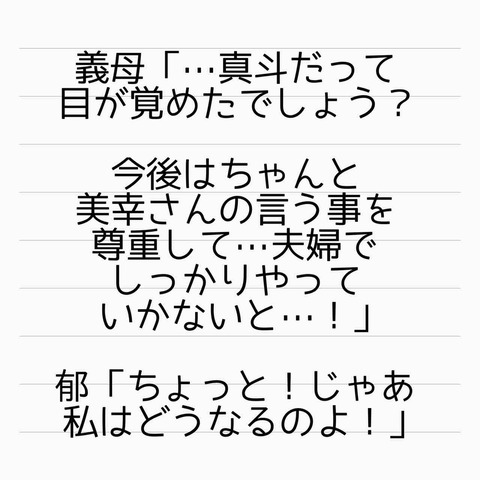 義母「…真斗だって
目が覚めたでしょう？
今後はちゃんと
美幸さんの言う事を
尊重して…夫婦で
しっかりやって
いかないと…！」
郁「ちょっと！じゃあ
私はどうなるのよ！」